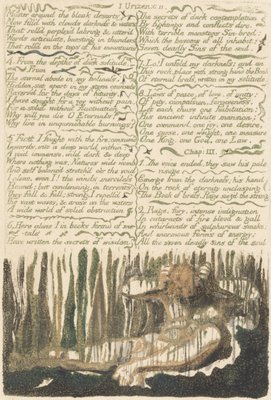 I Urizen: C II.
Muster around the bleak desarts
Now fill'd with clouds, darkness & waters
That roll'd perplex'd labring & utter'd
Words articulate, bursting in thunders
That roll'd on the tops of his mountains
4: From the depths of dark solitude.
From
The eternal abode in my holiness,
Hidden, set apart in my stern counsels
Reserv'd for the days of futurity,
I have sought for a joy without pain,
For a solid without fluctuation
Why will you die O Eternals?
Why live in unquenchable burnings?
5 First I fought with the fire; consum'd
Inwards, into a deep world within:
A void immense, wild dark & deep,
Where nothing was; Natures wide womb
And self balanc'd stretch'd o'er the void
I alone, even I! the winds merciless
Bound; but condensing, in torrents
They fall & fall; strong, I repell'd
The vast waves, & arose on the waters
A wide world of solid obstruction
6. Here alone I in books formd of me-
-tals
Have written the secrets of wisdom
The secrets of dark contemplation
By fightings and conflicts dire,
With terrible monsters Sin-bred:
Which the bosoms of all inhabit;
Seven deadly Sins of the soul.
7. Lo! I unfold my darkness: and on
This rock, place with strong hand the Book
Of eternal brass, written in my solitude.
8. Laws of peace, of love, of unity:
Of pity, compassion, forgiveness.
Let each chuse one habitation:
His ancient infinite mansion:
One command, one joy, one desire,
One curse, one weight, one measure
One King, one God, one Law.
Chap: III.
1. The voice ended, they saw his pale
visage
Emerge from the darkness; his hand
On the rock of eternity unclasping
The Book of brass. Rage siez'd the strong
2. Rage, fury, intense indignation
In cataracts of fire blood & gall
In whirlwinds of sulphurous smoke:
And enormous forms of energy;
All the seven deadly sins of the soul